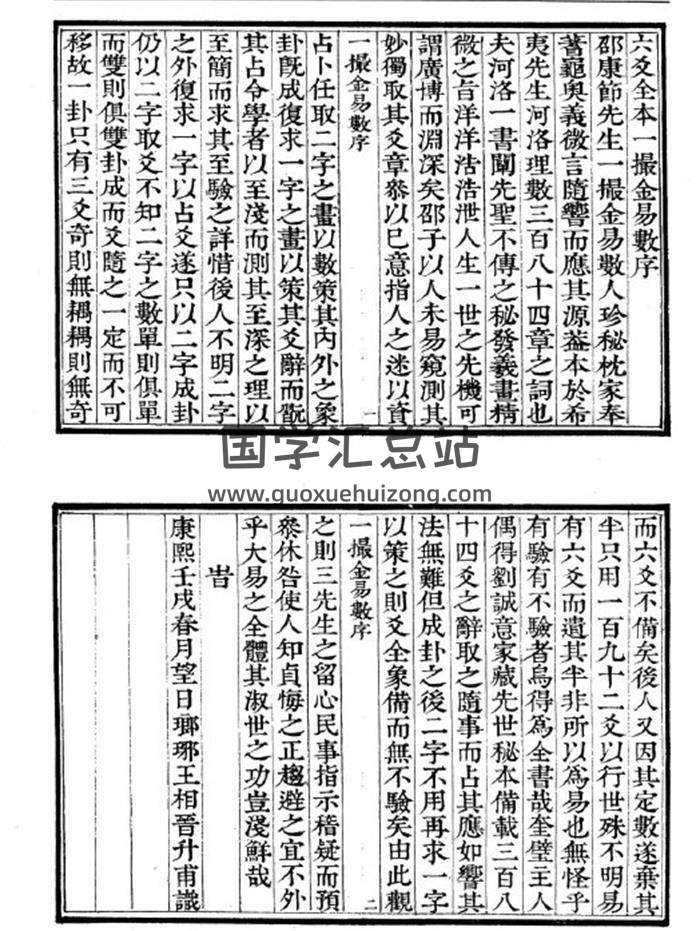 六爻全本一撮金易數序
邵康節先生一撮金易數人珍秘枕家奉
蓍龜奥義微言隨響而應其源葢本於希
夷先生河洛理數三百八十四章之詞也
夫河洛一書闡先聖不傳之秘發義畫精
微之旨洋洋浩浩泄人生一世之先機可
謂廣博而淵深矣邵子以人未易窺測其
妙獨取其爻章叅以巳意指人之迷以資
一撮金易數序
一
占卜任取二字之畫以數策其内外之象
卦旣成復求一字之畫以策其爻辭而翫
其占令學者以至淺而測其至深之理以
至簡而求其至驗之詳惜後人不明二字
之外復求一字以占爻遂只以二字成卦
仍以二字取爻不知二字之數單則俱單
而雙則俱雙卦成而爻隨之一定而不可
移故一卦只有三爻奇則無耦耦則無奇
国学汇总站
www.guoxuehuizong.com
而六爻不備矣後人又因其定數遂棄其
半只用一百九十二爻以行世殊不明易
有六爻而遺其半非所以爲易也無怪乎
有驗有不驗者烏得爲全書哉奎璧主人
偶得劉誠意家藏先世秘本備載三百八
十四爻之辭取之隨事而占其應如響其
法無難但成卦之後二字不用再求一字
以策之則爻全象備而無不驗矣由此觀
一撮金易數序
二
之則三先生之留心民事指示稽疑而預
叅休咎使人知貞悔之正趨避之宜不外
乎大易之全體其淑世之功豈淺鮮哉
旹
康熙壬戌春月望日瑯琊王相晉升甫識